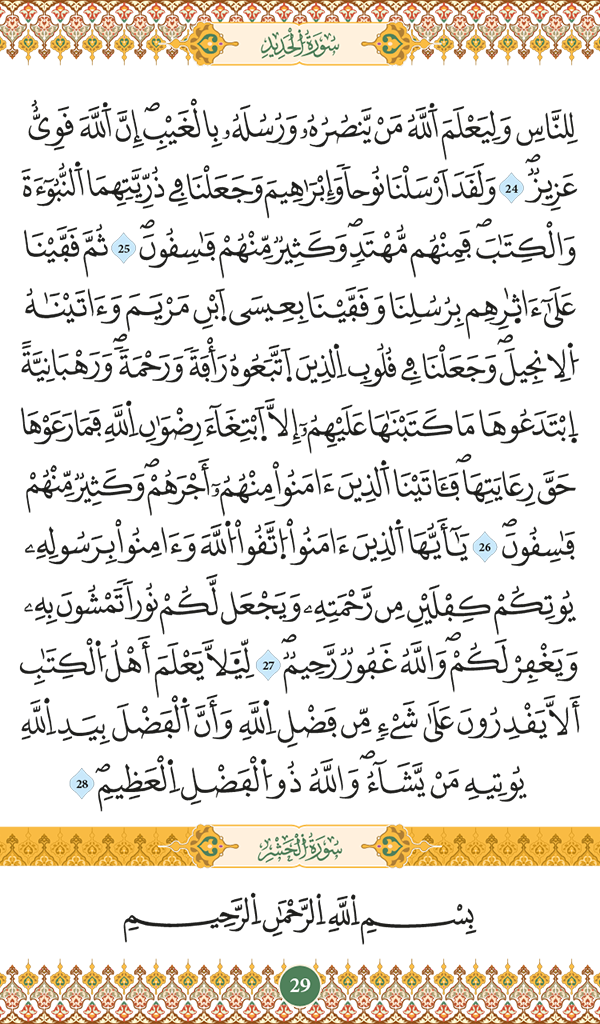 سُورَةُ الْحَدِيدِ
لِلنَّاسِ وَلِيَعْلَمَ اَ۬للَّهُ مَنْ يَّنصُرُهُۥ وَرُسُلَهُۥ بِالْغَيْبِۖ إِنَّ اَ۬للَّهَ قَوِيٌّ
عَزِيزٞۖ 24 وَلَقَدَ اَرْسَلْنَا نُوحاٗ وَإِبْرَٰهِيمَ وَجَعَلْنَا فِے ذُرِّيَّتِهِمَا اَ۬لنُّبُوٓءَةَ
وَالْكِتَٰبَۖ فَمِنْهُم مُّهْتَدٖۖ وَكَثِيرٞ مِّنْهُمْ فَٰسِقُونَۖ 25 ثُمَّ قَفَّيْنَا
عَلَىٰٓ ءَاثٰ۪رِهِم بِرُسُلِنَا وَقَفَّيْنَا بِعِيسَى اَ۪بْنِ مَرْيَمَ وَءَاتَيْنَٰهُ
اُ۬لِانجِيلَۖ وَجَعَلْنَا فِے قُلُوبِ اِ۬لذِينَ اَ۪تَّبَعُوهُ رَأْفَةٗ وَرَحْمَةٗۖ وَرَهْبَانِيَّةً
اِ۪بْتَدَعُوهَا مَا كَتَبْنَٰهَا عَلَيْهِمُۥٓ إِلَّا اَ۪بْتِغَآءَ رِضْوَٰنِ اِ۬للَّهِ فَمَا رَعَوْهَا
حَقَّ رِعَايَتِهَاۖ فَـَٔاتَيْنَا اَ۬لذِينَ ءَامَنُواْ مِنْهُمُۥٓ أَجْرَهُمْۖ وَكَثِيرٞ مِّنْهُمْ
فَٰسِقُونَۖ 26 يَٰٓأَيُّهَا اَ۬لذِينَ ءَامَنُواْ اُ۪تَّقُواْ اُ۬للَّهَ وَءَامِنُواْ بِرَسُولِهِۦ
يُوتِكُمْ كِفْلَيْنِ مِن رَّحْمَتِهِۦ وَيَجْعَل لَّكُمْ نُوراٗ تَمْشُونَ بِهِۦ
وَيَغْفِرْ لَكُمْۖ وَاللَّهُ غَفُورٞ رَّحِيمٞۖ 27 لِّيَ۬لَّا يَعْلَمَ أَهْلُ اُ۬لْكِتَٰبِ
أَلَّا يَقْدِرُونَ عَلَىٰ شَےْءٖ مِّن فَضْلِ اِ۬للَّهِ وَأَنَّ اَ۬لْفَضْلَ بِيَدِ اِ۬للَّهِ
يُوتِيهِ مَنْ يَّشَآءُۖ وَاللَّهُ ذُو اُ۬لْفَضْلِ اِ۬لْعَظِيمِۖ 28
سُورَةُ الْحَشْرِ
بِسْمِ اِ۬للَّهِ اِ۬لرَّحْمَٰنِ اِ۬لرَّحِيمِ
29